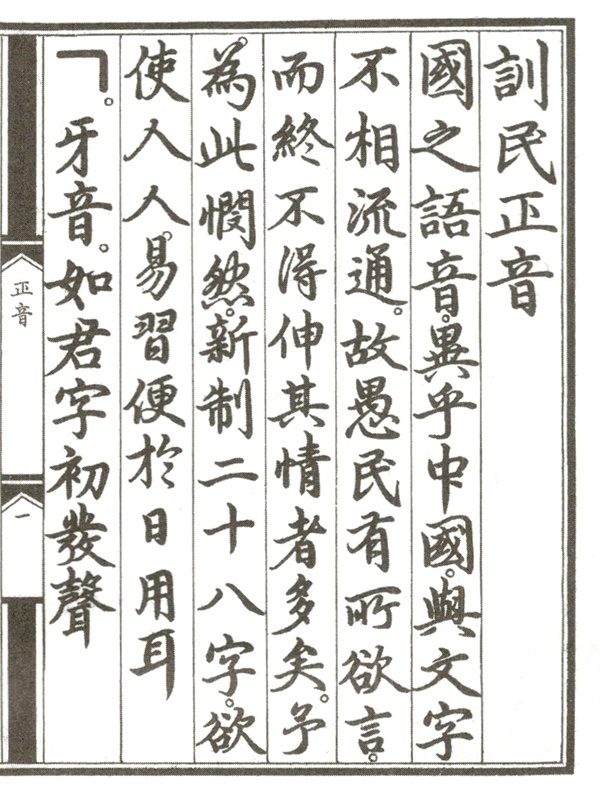 訓民正音
國之語音。異乎中國。與文字
不相流通。故愚民有所欲言。
而終不得伸其情者多矣。予
為此憫然。新制二十八字。欲
使人人。易習便於日用耳
ㄱ。牙音。如君字初發聲
正音
一